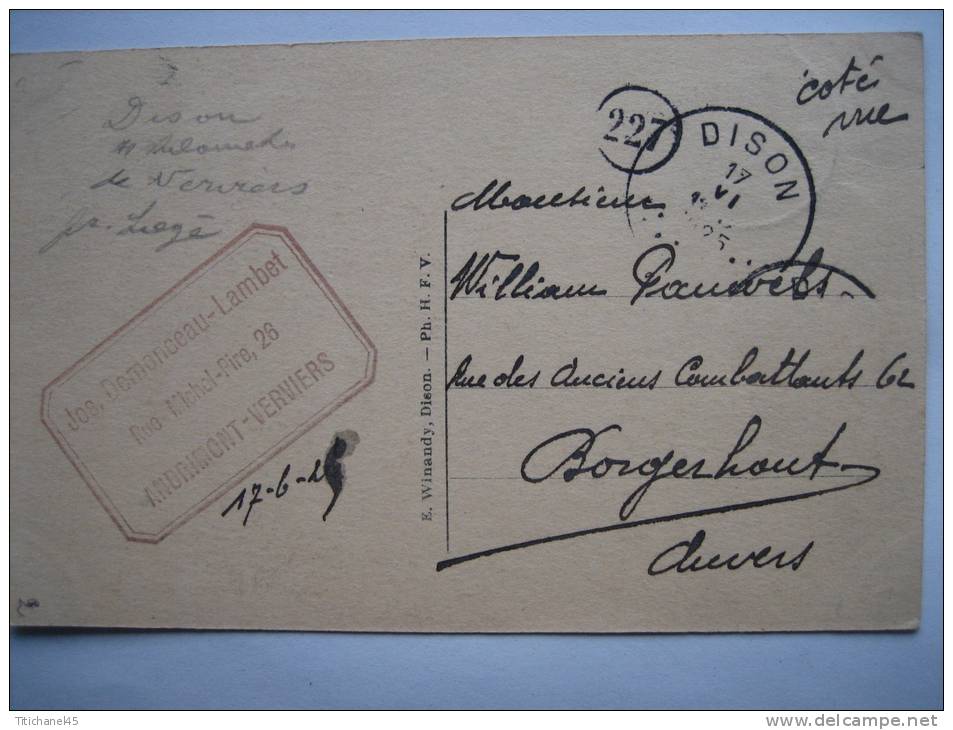 Dison
de Verviers
pr. Liège
Jos. Demonceau-Lambet
Rue Michel-Pire, 26
ANDRIMONT-VERVIERS
17-6-25
E. Winandy, Dison. — Ph. H. F. V.
coté
vue
227
DISON
17
VI
Monsieur
William Pauwels
Rue des Anciens Combattants 62
Borgerhout
Anvers
Ttichane45
www.delcampe.net